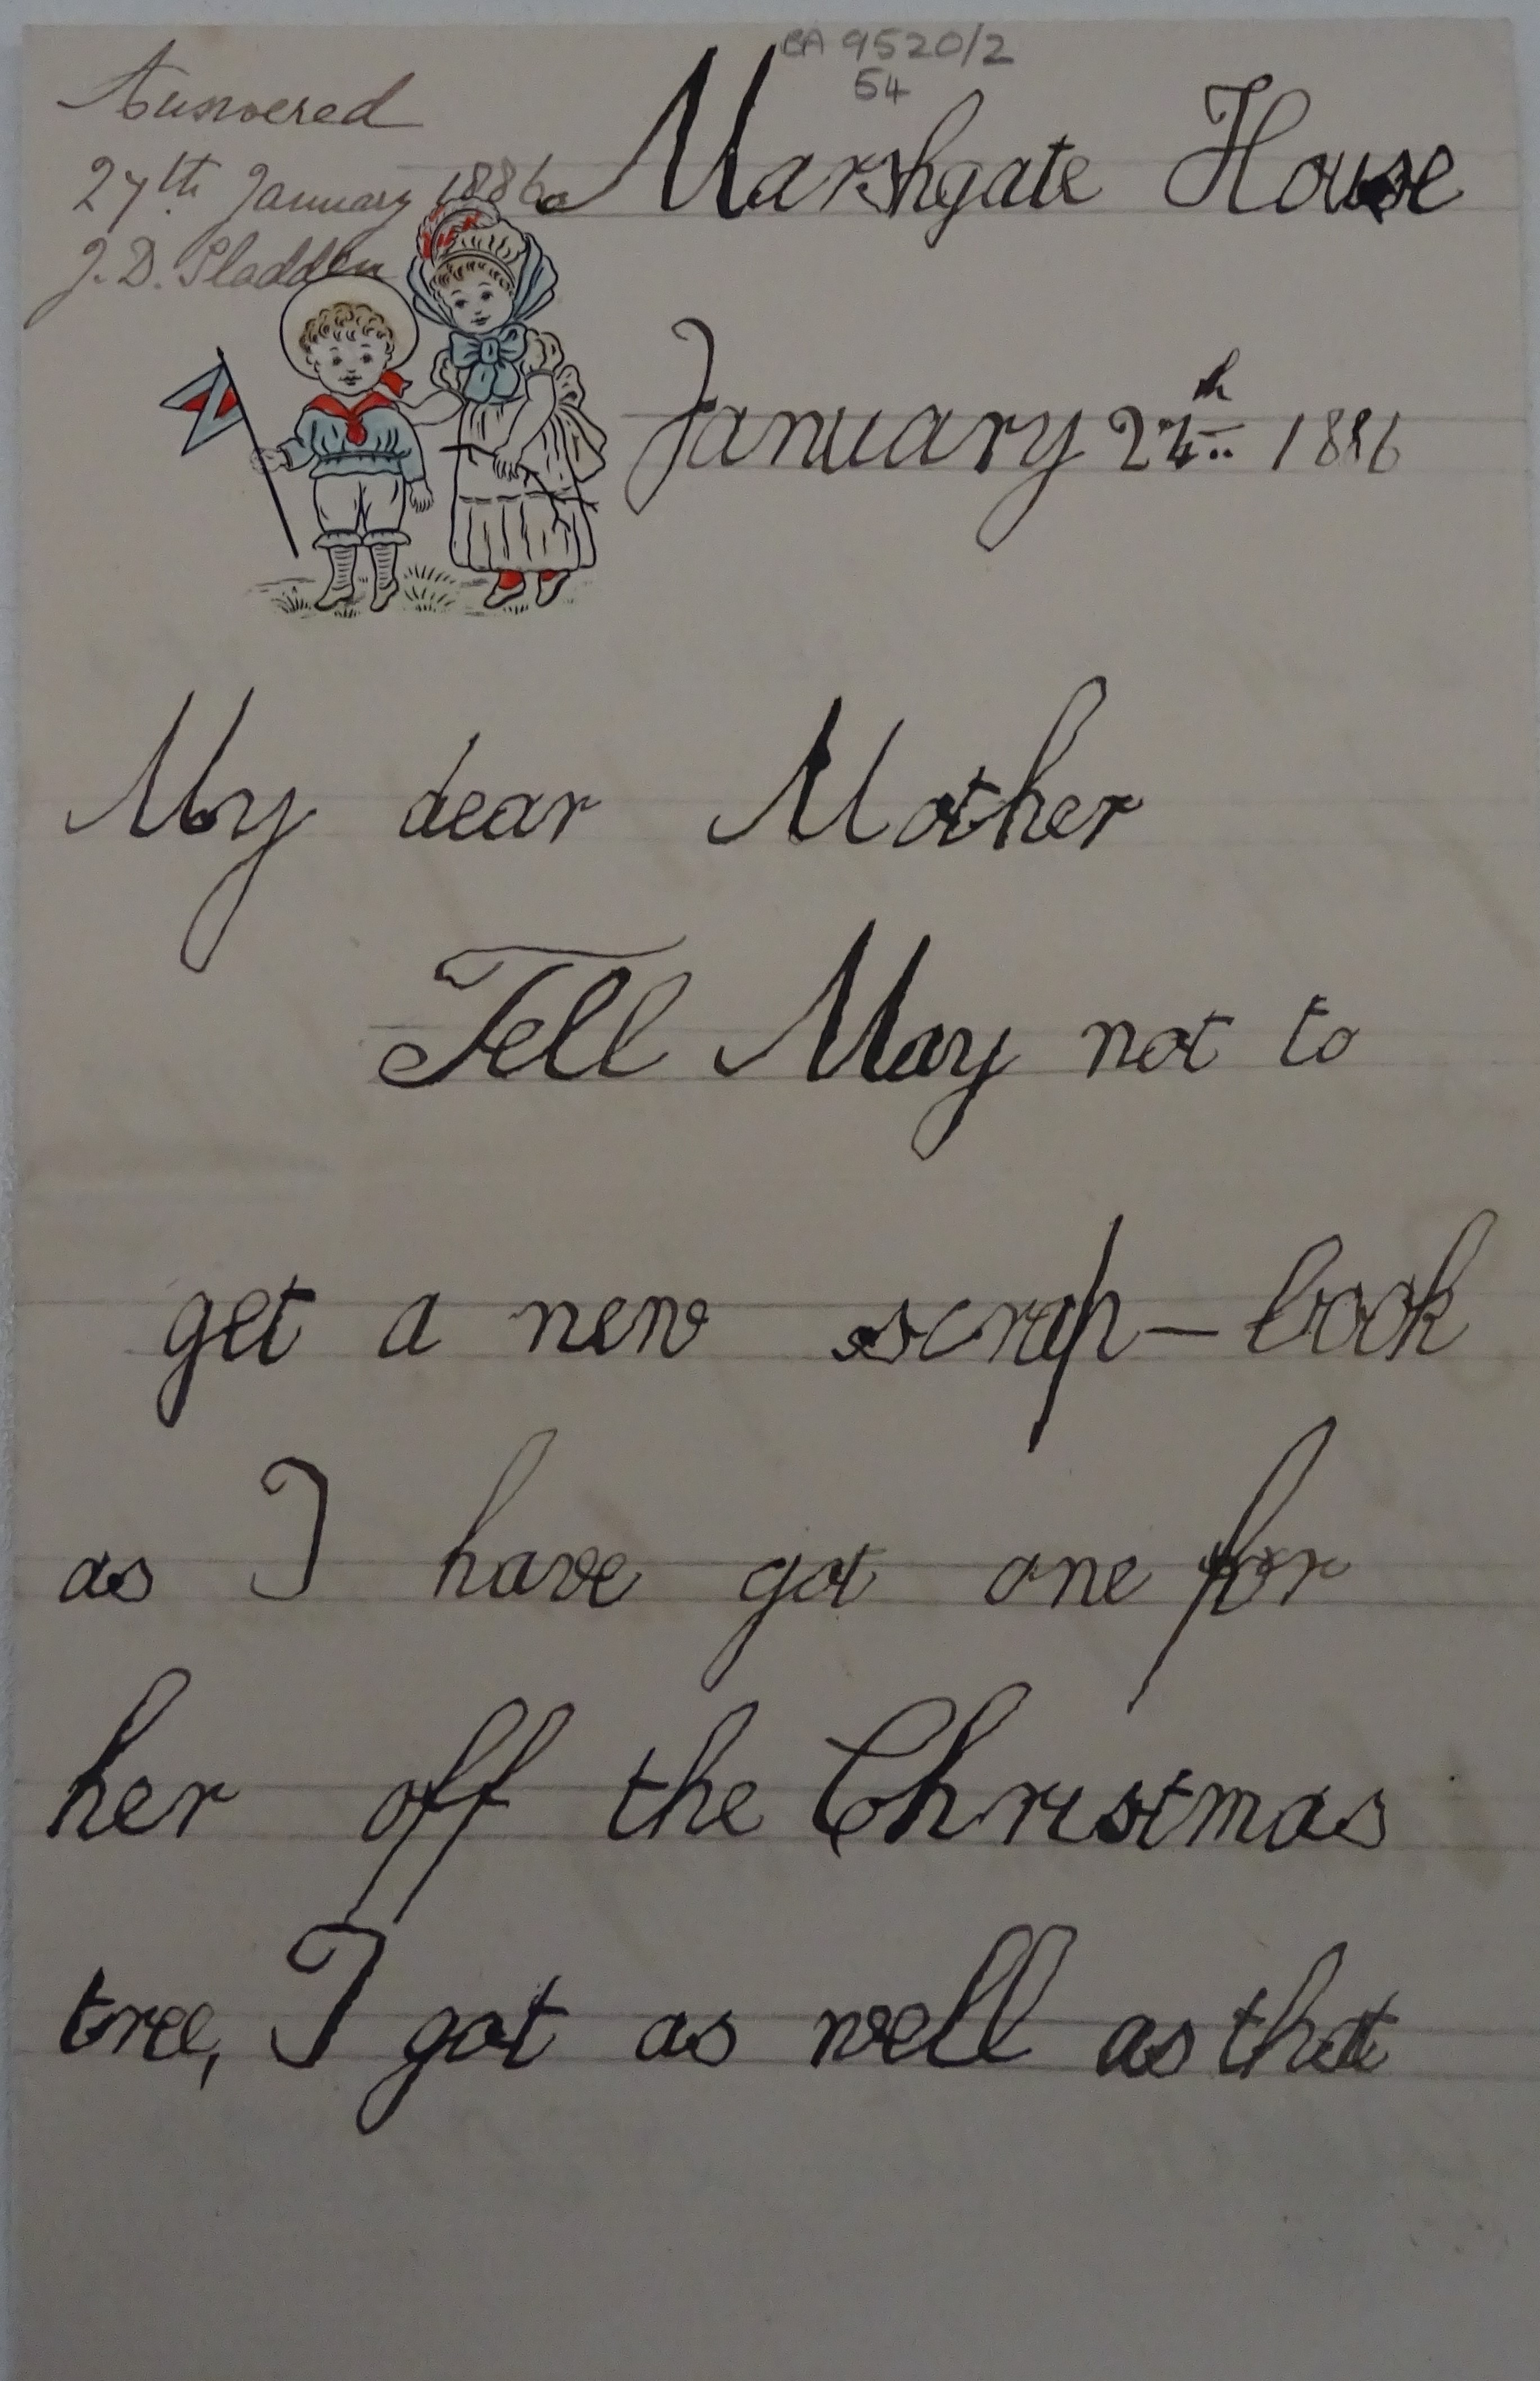 BA 9520/2
54
Answered
27th January 1886
J. D. Sladden
Marshgate House
January 24th 1886
My dear Mother
Tell May not to
get a new scrap-book
as I have got one for
her off the Christmas
tree, I got as well as that